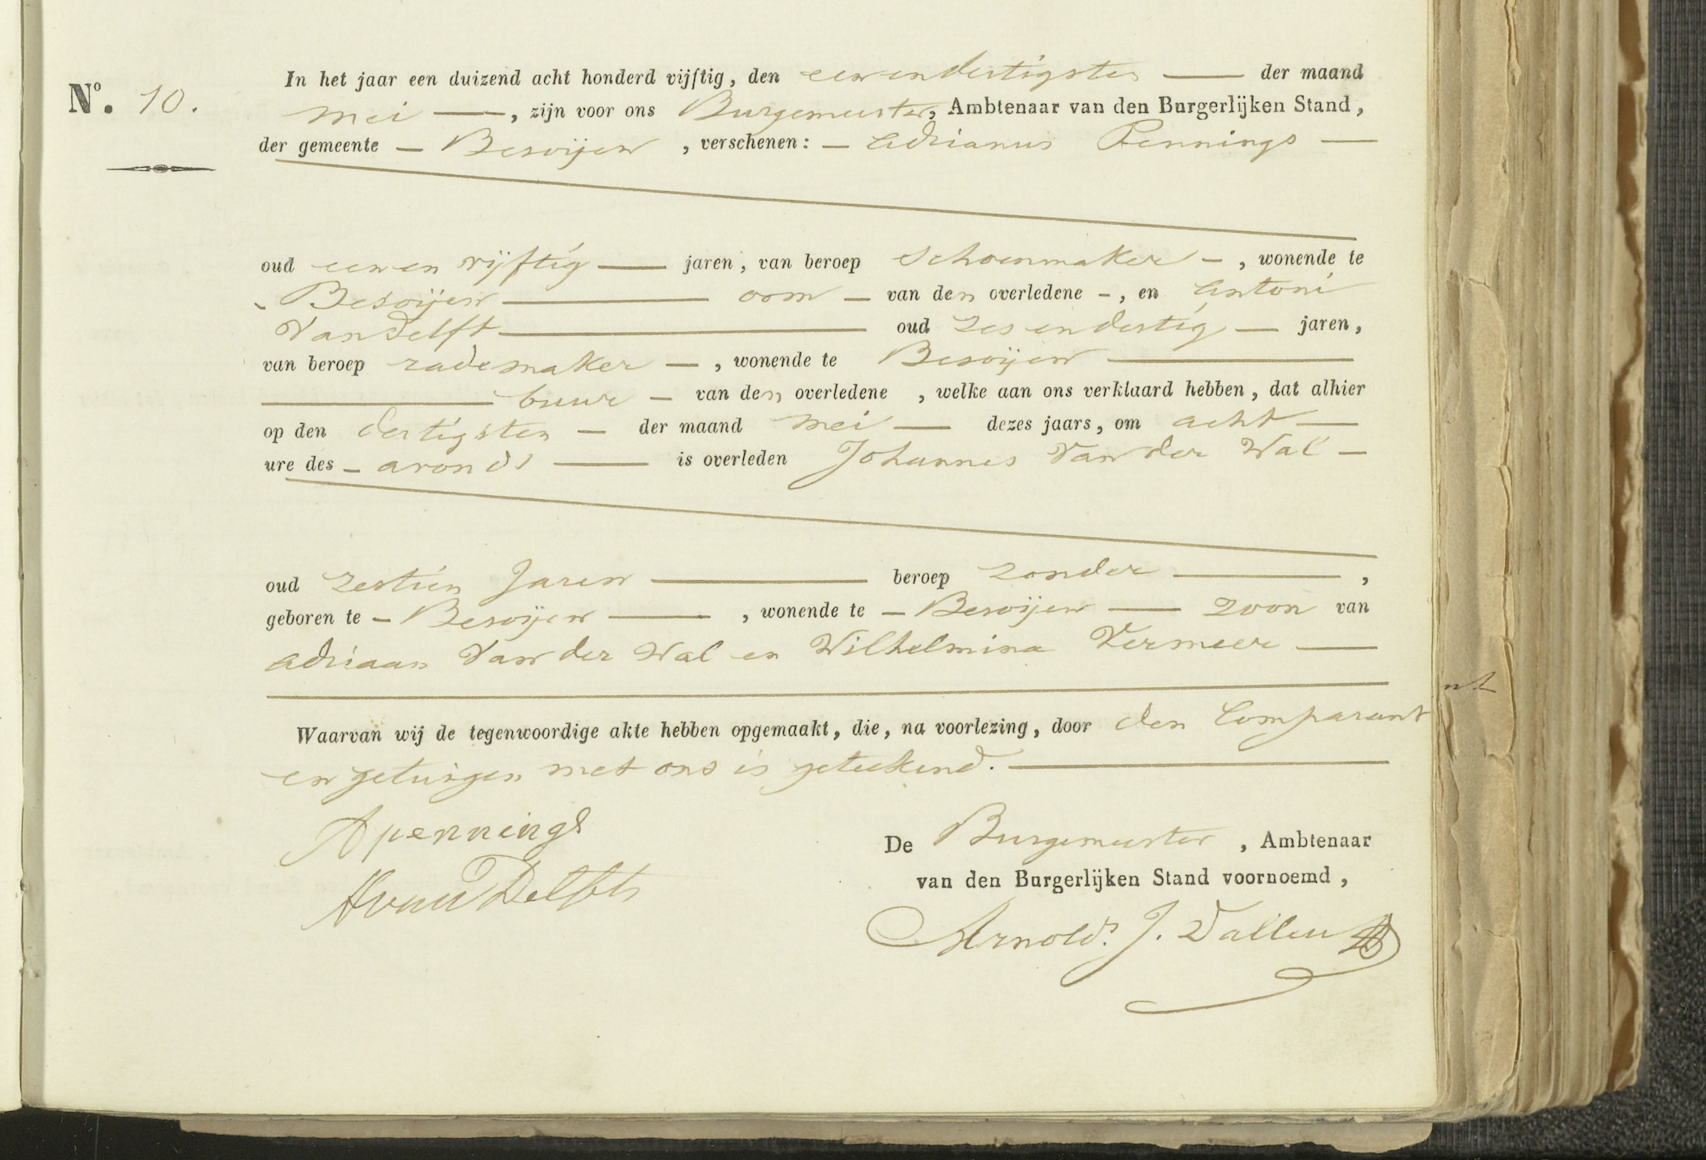 No. 10.
In het jaar een duizend acht honderd vijftig, den eenendertigsten — der maand
Mei —, zijn voor ons Burgemeester, Ambtenaar van den Burgerlijken Stand,
der gemeente — Besoijen, verschenen: — Adrianus Pennings —
oud eenen vijftig — jaren, van beroep Schoenmaker —, wonende te
Besoijen — oom — van den overledene —, en Antoni
Van Delft — oud zes en dertig — jaren,
van beroep rademaker —, wonende te Besoijen —
— buur — van den overledene, welke aan ons verklaard hebben, dat alhier
op den dertigsten — der maand Mei — dezes jaars, om acht —
ure des — avonds — is overleden Johannes Van der Wal —
oud zestien Jaren — beroep zonder —,
geboren te — Besoijen —, wonende te — Besoijen — zoon van
Adriaan Van der Wal en Wilhelmina Vermeer —
Waarvan wij de tegenwoordige akte hebben opgemaakt, die, na voorlezing, door den Comparant
en getuigen met ons is geteekend. —
A pennings
A van Delft
De Burgemeester, Ambtenaar
van den Burgerlijken Stand voornoemd,
Arnold.s J.